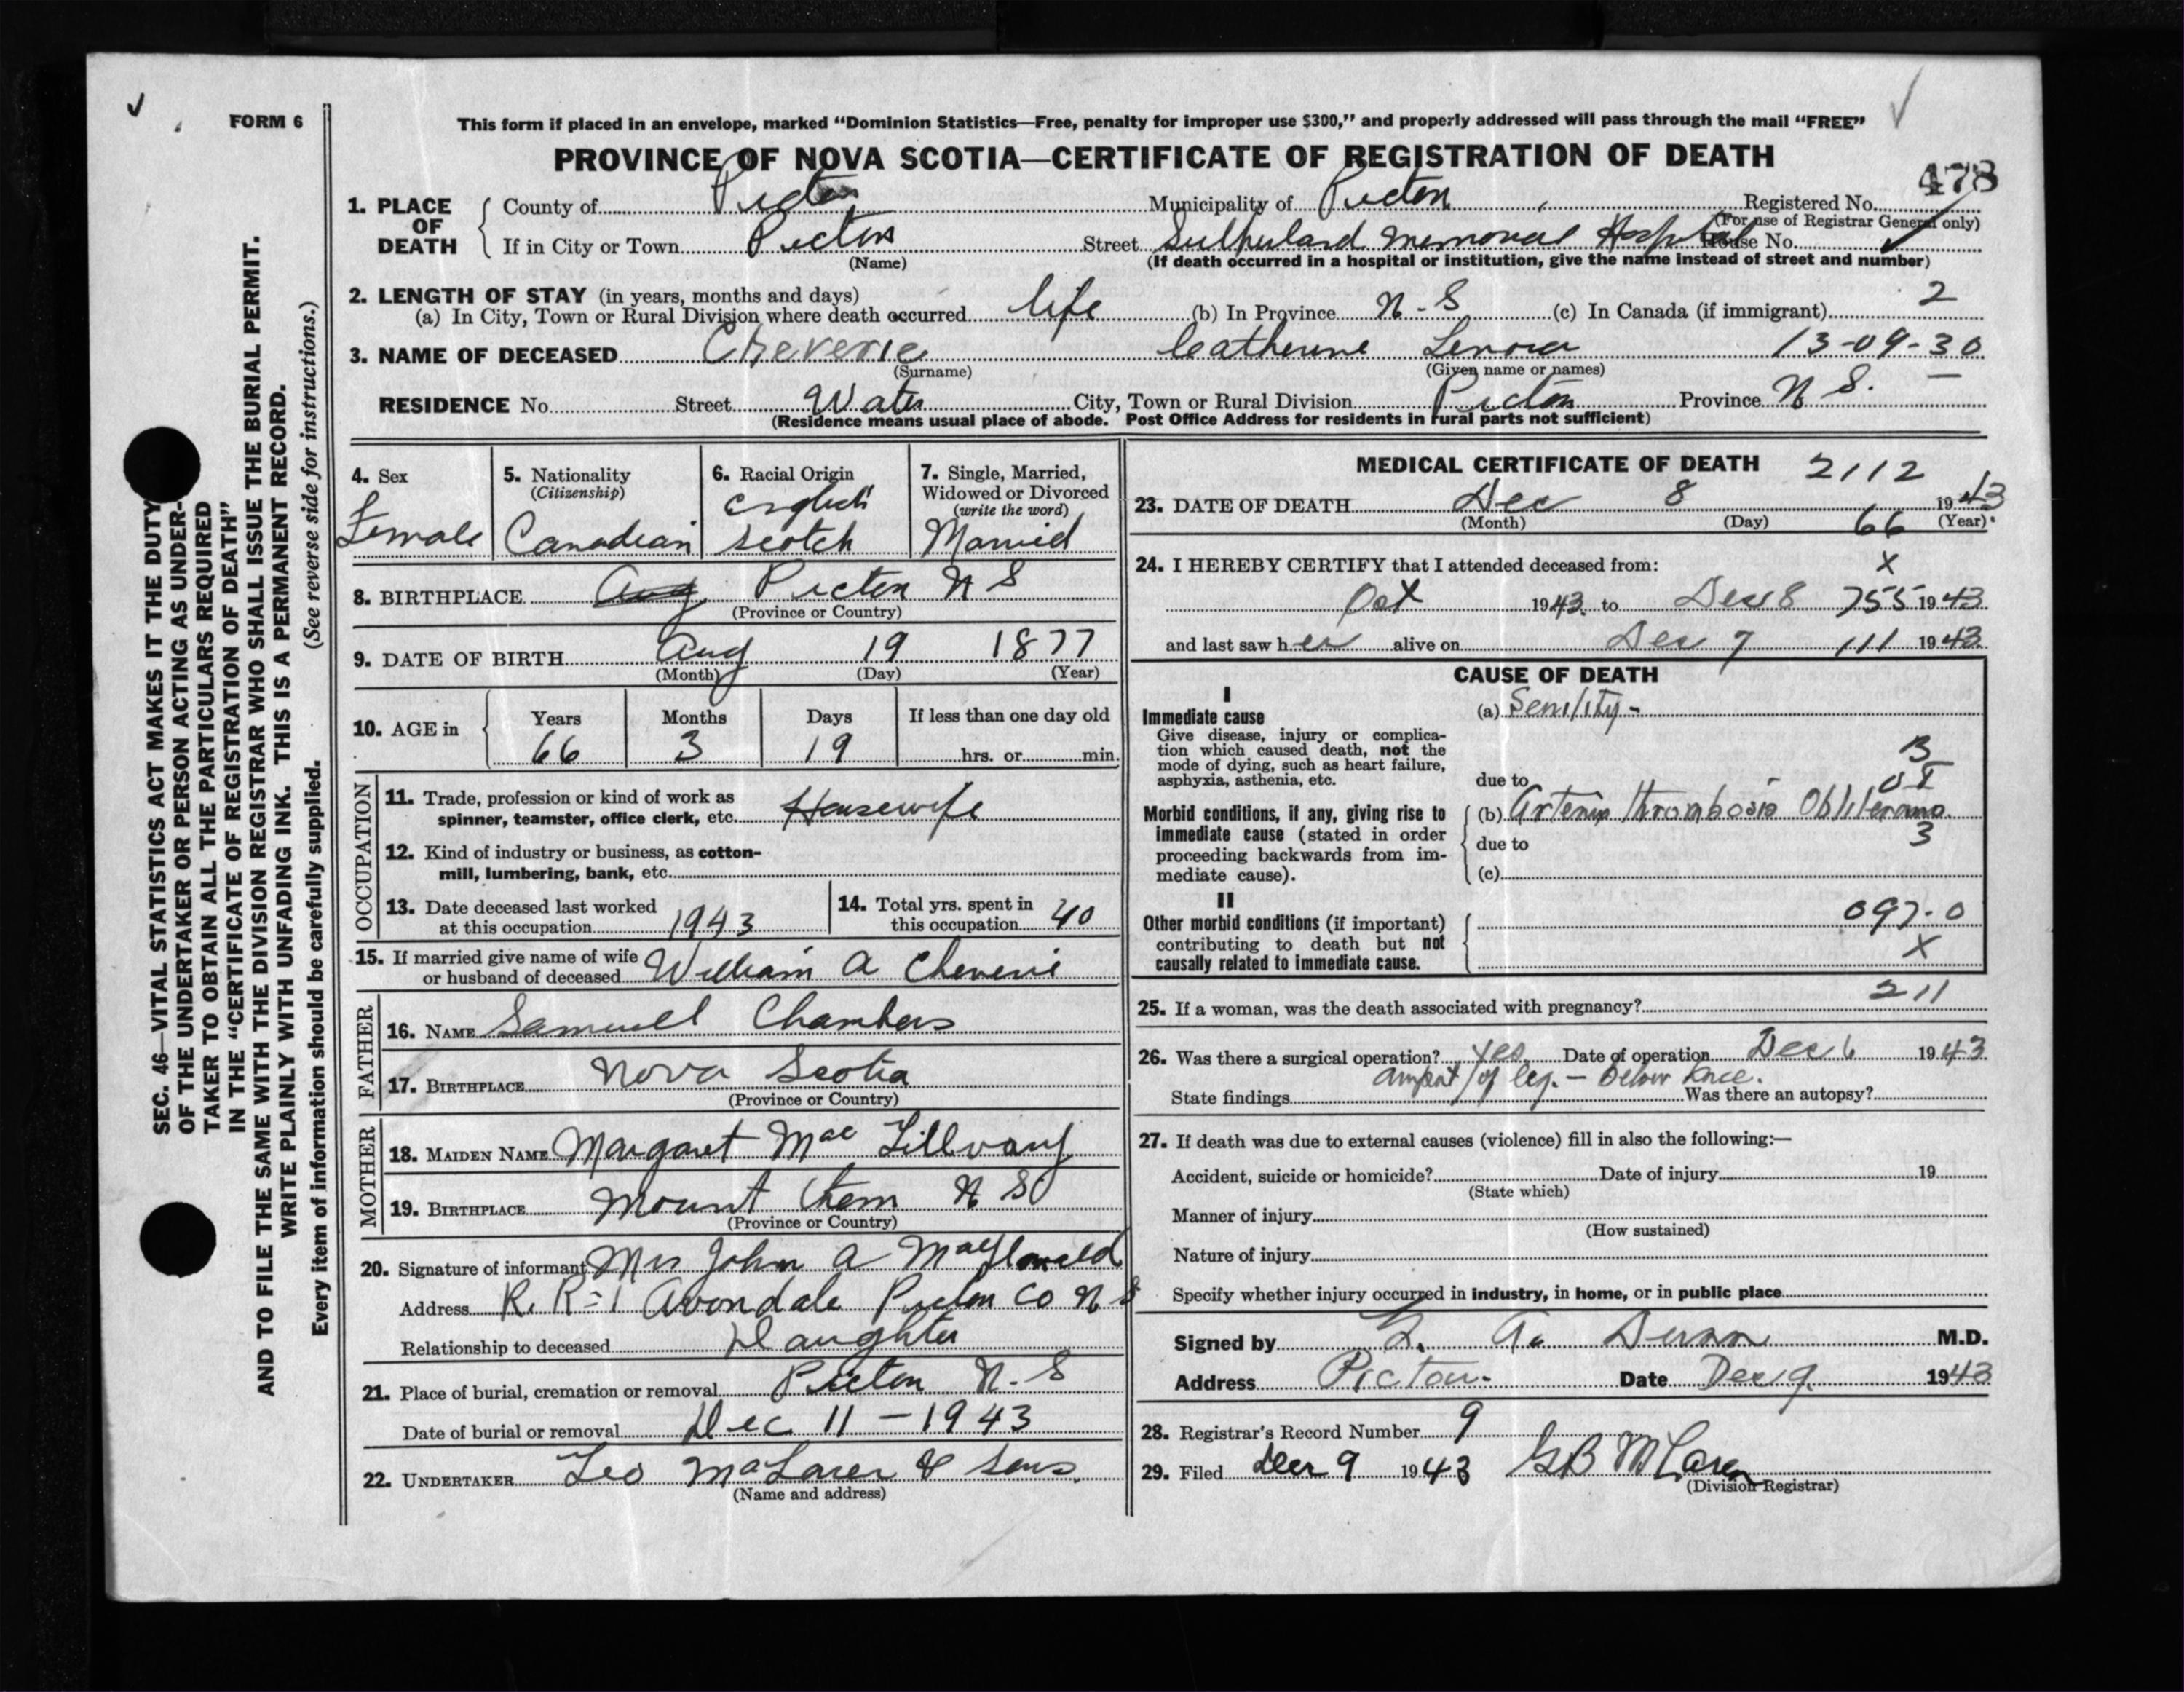 ✓
FORM 6
This form if placed in an envelope, marked "Dominion Statistics—Free, penalty for improper use $300," and properly addressed will pass through the mail "FREE"
PROVINCE OF NOVA SCOTIA—CERTIFICATE OF REGISTRATION OF DEATH
478
1. PLACE OF DEATH
County of Pictou Municipality of Pictou Registered No.
(For use of Registrar General only)
If in City or Town Pictou Street Sutherland Memorial Hospital House No.
(Name) (If death occurred in a hospital or institution, give the name instead of street and number)
2. LENGTH OF STAY (in years, months and days)
(a) In City, Town or Rural Division where death occurred life (b) In Province N-S (c) In Canada (if immigrant) 2
3. NAME OF DECEASED Cheverie Catherine Lenora 13-09-30
(Surname) (Given name or names)
RESIDENCE No. Street Water City, Town or Rural Division Pictou Province N S. —
(Residence means usual place of abode. Post Office Address for residents in rural parts not sufficient)
4. Sex
Female
5. Nationality
(Citizenship)
Canadian
6. Racial Origin
English
Scotch
7. Single, Married,
Widowed or Divorced
(write the word)
Married
8. BIRTHPLACE Aug Pictou N S
(Province or Country)
9. DATE OF BIRTH Aug 19 1877
(Month) (Day) (Year)
10. AGE in
Years Months Days If less than one day old
66 3 19 hrs. or min.
OCCUPATION
11. Trade, profession or kind of work as
spinner, teamster, office clerk, etc. Housewife
12. Kind of industry or business, as cotton-
mill, lumbering, bank, etc.
13. Date deceased last worked
at this occupation 1943
14. Total yrs. spent in
this occupation 40
15. If married give name of wife
or husband of deceased William A Cheverie
FATHER
16. NAME Samuel Chambers
17. BIRTHPLACE Nova Scotia
(Province or Country)
MOTHER
18. MAIDEN NAME Margaret Mac
19. BIRTHPLACE Mount Thom N S
(Province or Country)
20. Signature of informant Mrs John A MacDonald
Address R. R=1 Avondale Pictou Co N S
Relationship to deceased Daughter
21. Place of burial, cremation or removal Pictou N-S
Date of burial or removal Dec 11-1943
22. UNDERTAKER Leo McLaren & Sons
(Name and address)
MEDICAL CERTIFICATE OF DEATH 2112
23. DATE OF DEATH Dec 8 1943
(Month) (Day) 66 (Year)
24. I HEREBY CERTIFY that I attended deceased from: x
Oct 1943 to Dec 8 755 1943
and last saw her alive on Dec 7 111 1943
CAUSE OF DEATH
I
Immediate cause
Give disease, injury or complica-
tion which caused death, not the
mode of dying, such as heart failure,
asphyxia, asthenia, etc.
(a) Senility -
due to
Morbid conditions, if any, giving rise to
immediate cause (stated in order
proceeding backwards from im-
mediate cause).
(b) thrombosis
due to 3
(c)
II
Other morbid conditions (if important)
contributing to death but not
causally related to immediate cause.
097-0
X
25. If a woman, was the death associated with pregnancy? 211
26. Was there a surgical operation? Yes. Date of operation Dec 6 1943
amput/of leg. - Below knee.
State findings Was there an autopsy?
27. If death was due to external causes (violence) fill in also the following:—
Accident, suicide or homicide? Date of injury 19
(State which)
Manner of injury
(How sustained)
Nature of injury
Specify whether injury occurred in industry, in home, or in public place
Signed by A. Dunn M.D.
Address Pictou. Date Dec 9. 1943
28. Registrar's Record Number 9
29. Filed Dec 9 1943 GB McLaren
(Division Registrar)
SEC. 46—VITAL STATISTICS ACT MAKES IT THE DUTY
OF THE UNDERTAKER OR PERSON ACTING AS UNDER-
TAKER TO OBTAIN ALL THE PARTICULARS REQUIRED
IN THE "CERTIFICATE OF REGISTRATION OF DEATH"
AND TO FILE THE SAME WITH THE DIVISION REGISTRAR WHO SHALL ISSUE THE BURIAL PERMIT.
WRITE PLAINLY WITH UNFADING INK. THIS IS A PERMANENT RECORD.
Every item of information should be carefully supplied. (See reverse side for instructions.)